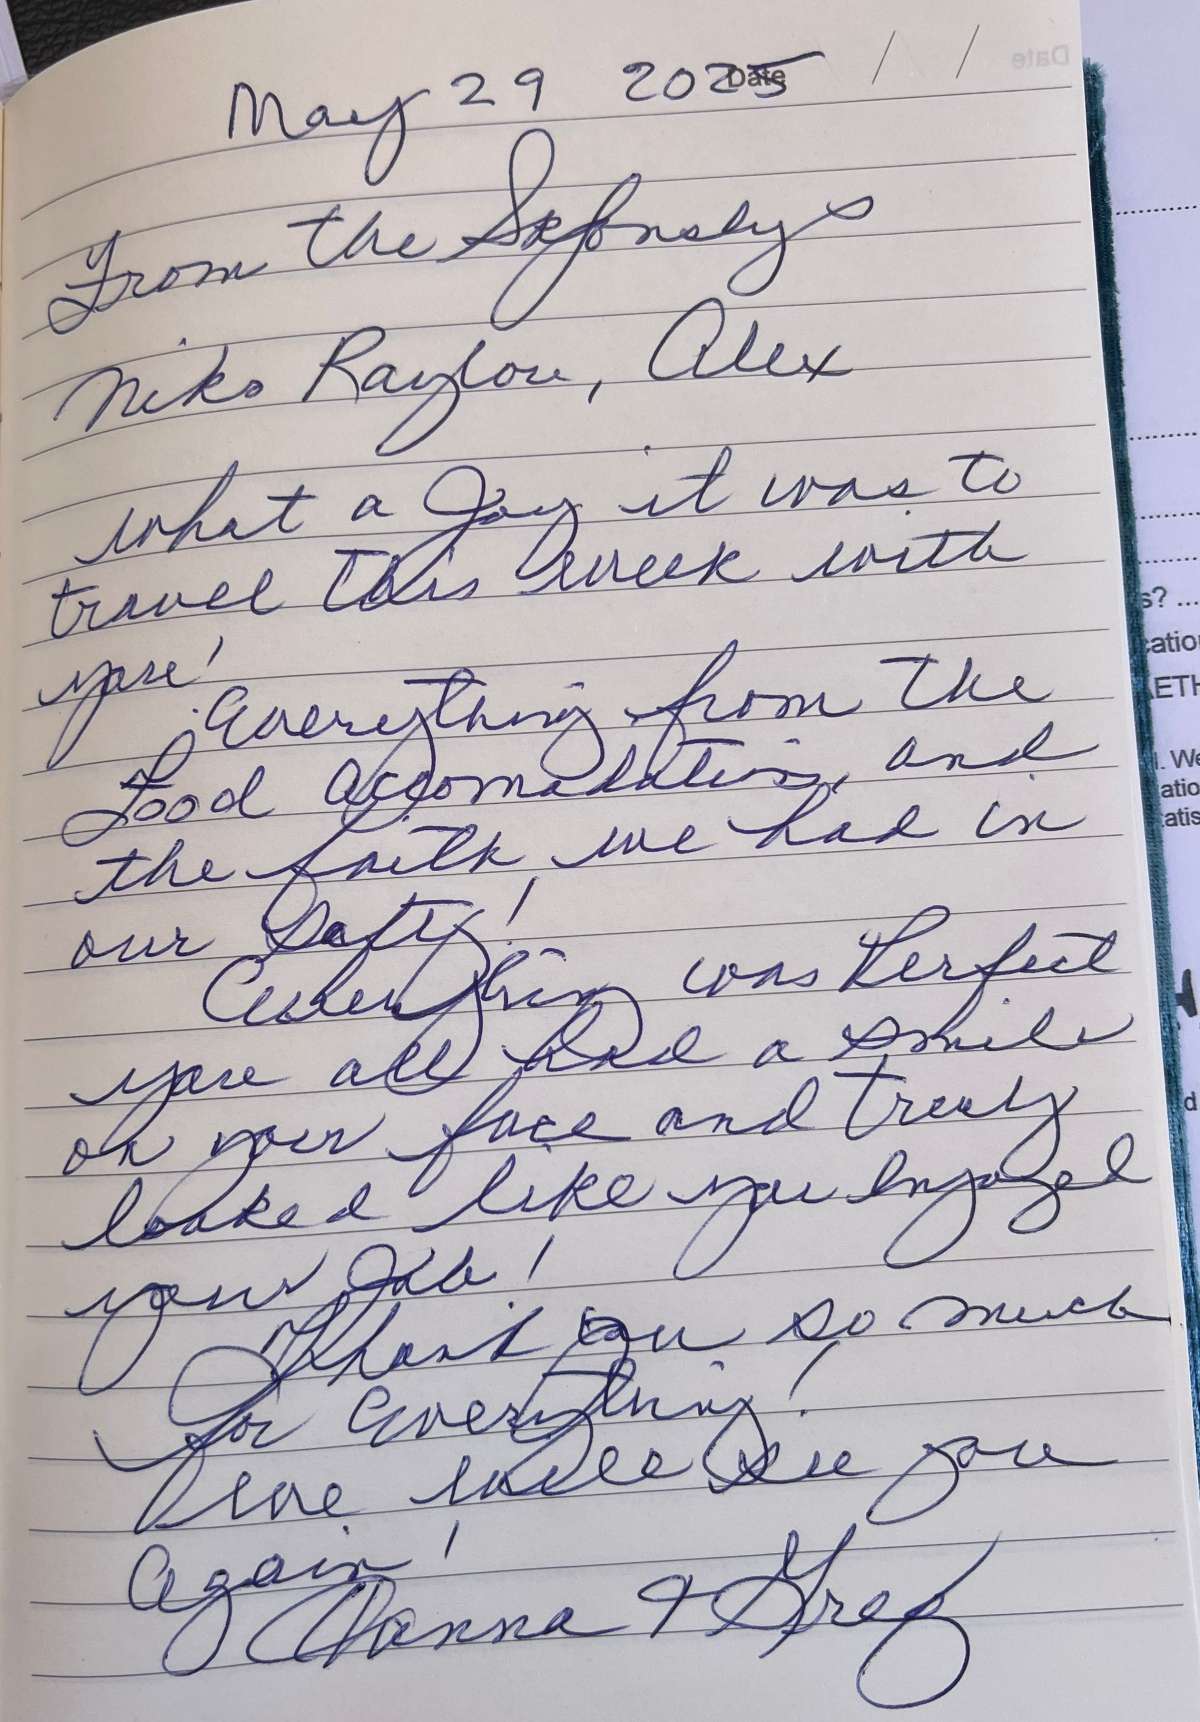 Date
May 29 2025 Date / /
From the
Niko Raylou, Alex
what a Joy it was to
travel this week with
you!
Everything from the
Food accomodation, and
the faith we had in
our Safty!
Everything was Perfect
you all had a smile
on your face and truly
looked like you enjoyed
your Job!
Thank you so much
for everything!
We will see you
again!
& Greg
s? ....
catio
AETH
l. We
atio
tatis
d